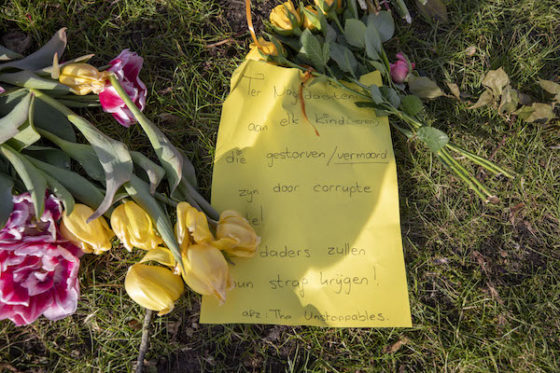 Ter Nagedachtenis
aan elk kind
die gestorven / vermoord
zyn door corrupte
daders zullen
hun straf krijgen!
afz: The Unstoppables.